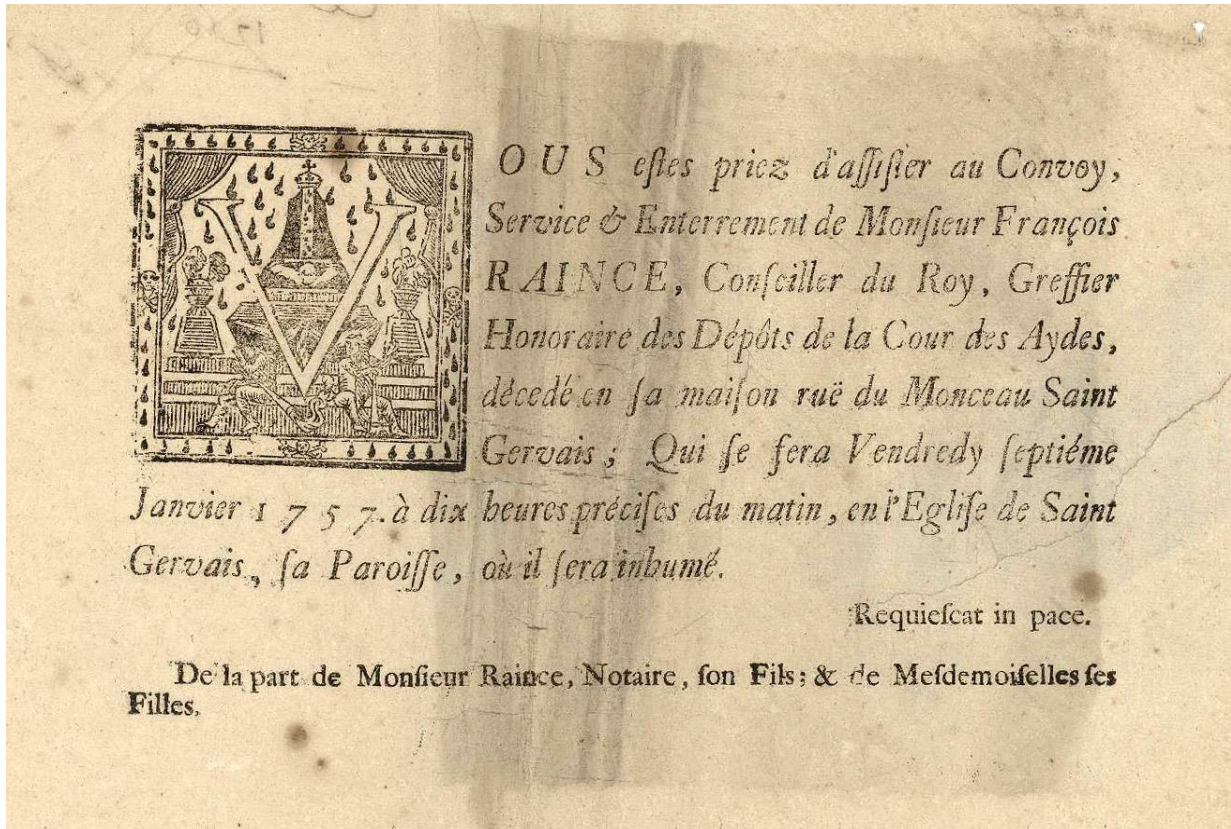 VOUS eſtes priez d'aſſiſter au Convoy,
Service & Enterrement de Monſieur François
RAINCE, Conſeiller du Roy, Greffier
Honoraire des Dépôts de la Cour des Aydes,
décedé en ſa maiſon ruë du Monceau Saint
Gervais; Qui ſe fera Vendredy ſeptiéme
Janvier 1757. à dix heures préciſes du matin, en l'Egliſe de Saint
Gervais, ſa Paroiſſe, où il ſera inhumé.
Requieſcat in pace.
De la part de Monſieur Raince, Notaire, ſon Fils; & de Meſdemoiſelles ſes
Filles.